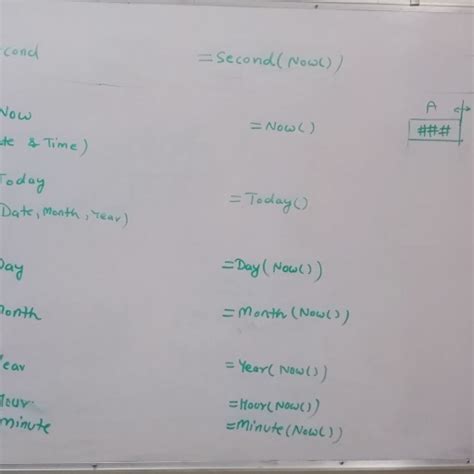 cond =Second(Now())
Now =Now()
te & Time)
A
###
Today =Today()
Date, Month, Year)
Day =Day(Now())
onth =Month(Now())
ear =Year(Now())
Hour =Hour(Now())
minute =Minute(Now())